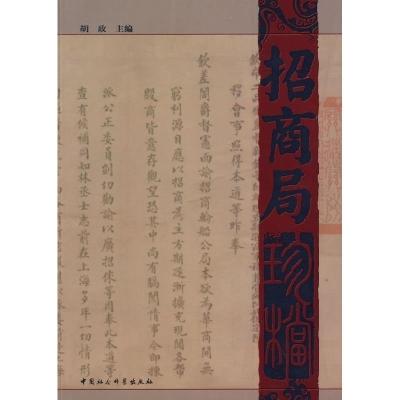 胡政 主编
招商局
珍檔
程會事照得本道等昨奉
欽差閣爵督憲面諭招商輪船公局本欲為華商開無
窮利源目應以招商為主方期逐漸擴充現聞各幫
殷商皆意存觀望恐其中尚有隔閡情事今即揀
派公正委員剴切勸論以廣招徠等因奉此本道等
查有候補同知林丞士志前在上海多年一切情形
中国社会科学出版社